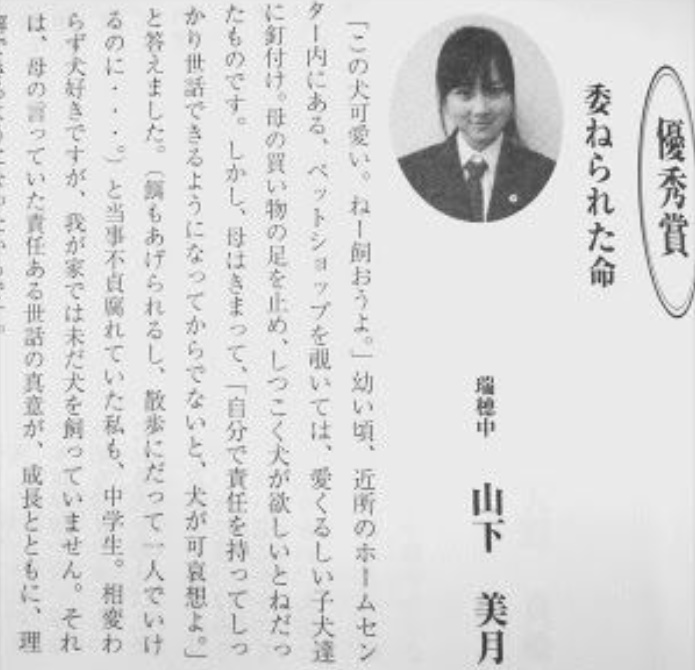 優秀賞
委ねられた命
瑞穂中 山下 美月
「この犬可愛い。ねー飼おうよ。」幼い頃、近所のホームセン
ター内にある、ペットショップを覗いては、愛くるしい子犬達
に釘付け。母の買い物の足を止め、しつこく犬が欲しいとねだっ
たものです。しかし、母はきまって、「自分で責任を持ってしっ
かり世話できるようになってからでないと、犬が可哀想よ。」
と答えました。（餌もあげられるし、散歩にだって一人でいけ
るのに・・・。）と当事不貞腐れていた私も、中学生。相変わ
らず犬好きですが、我が家では未だ犬を飼っていません。それ
は、母の言っていた責任ある世話の真意が、成長とともに、理